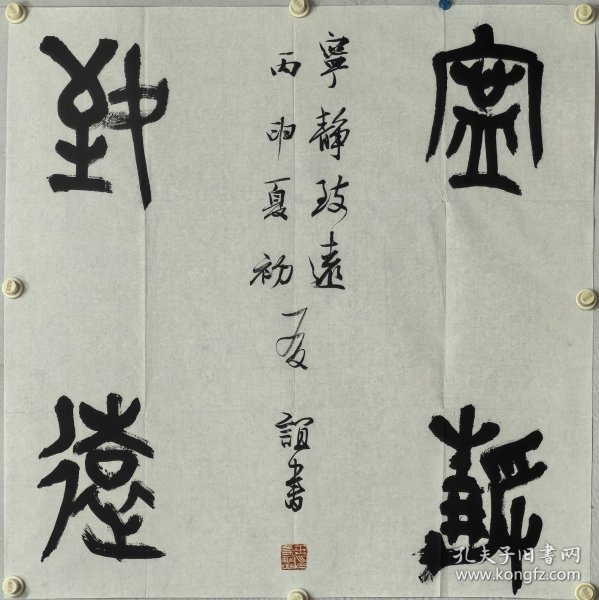 寧靜
致遠
寧靜致遠
丙申夏初
友誼書
孔夫子旧书网
www.kongfz.com